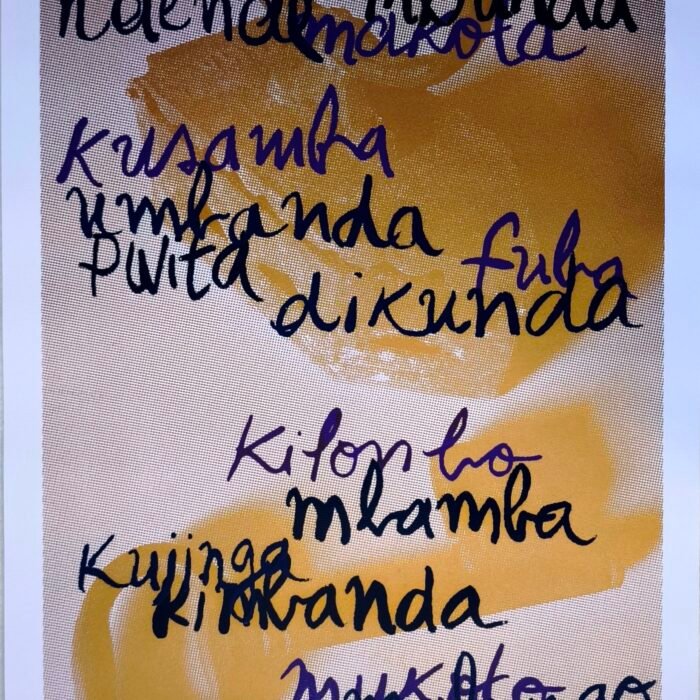 makota
kusamba
umbanda
pwita fuba
dikunda
kilombo
mbamba
kujinga
kimbanda